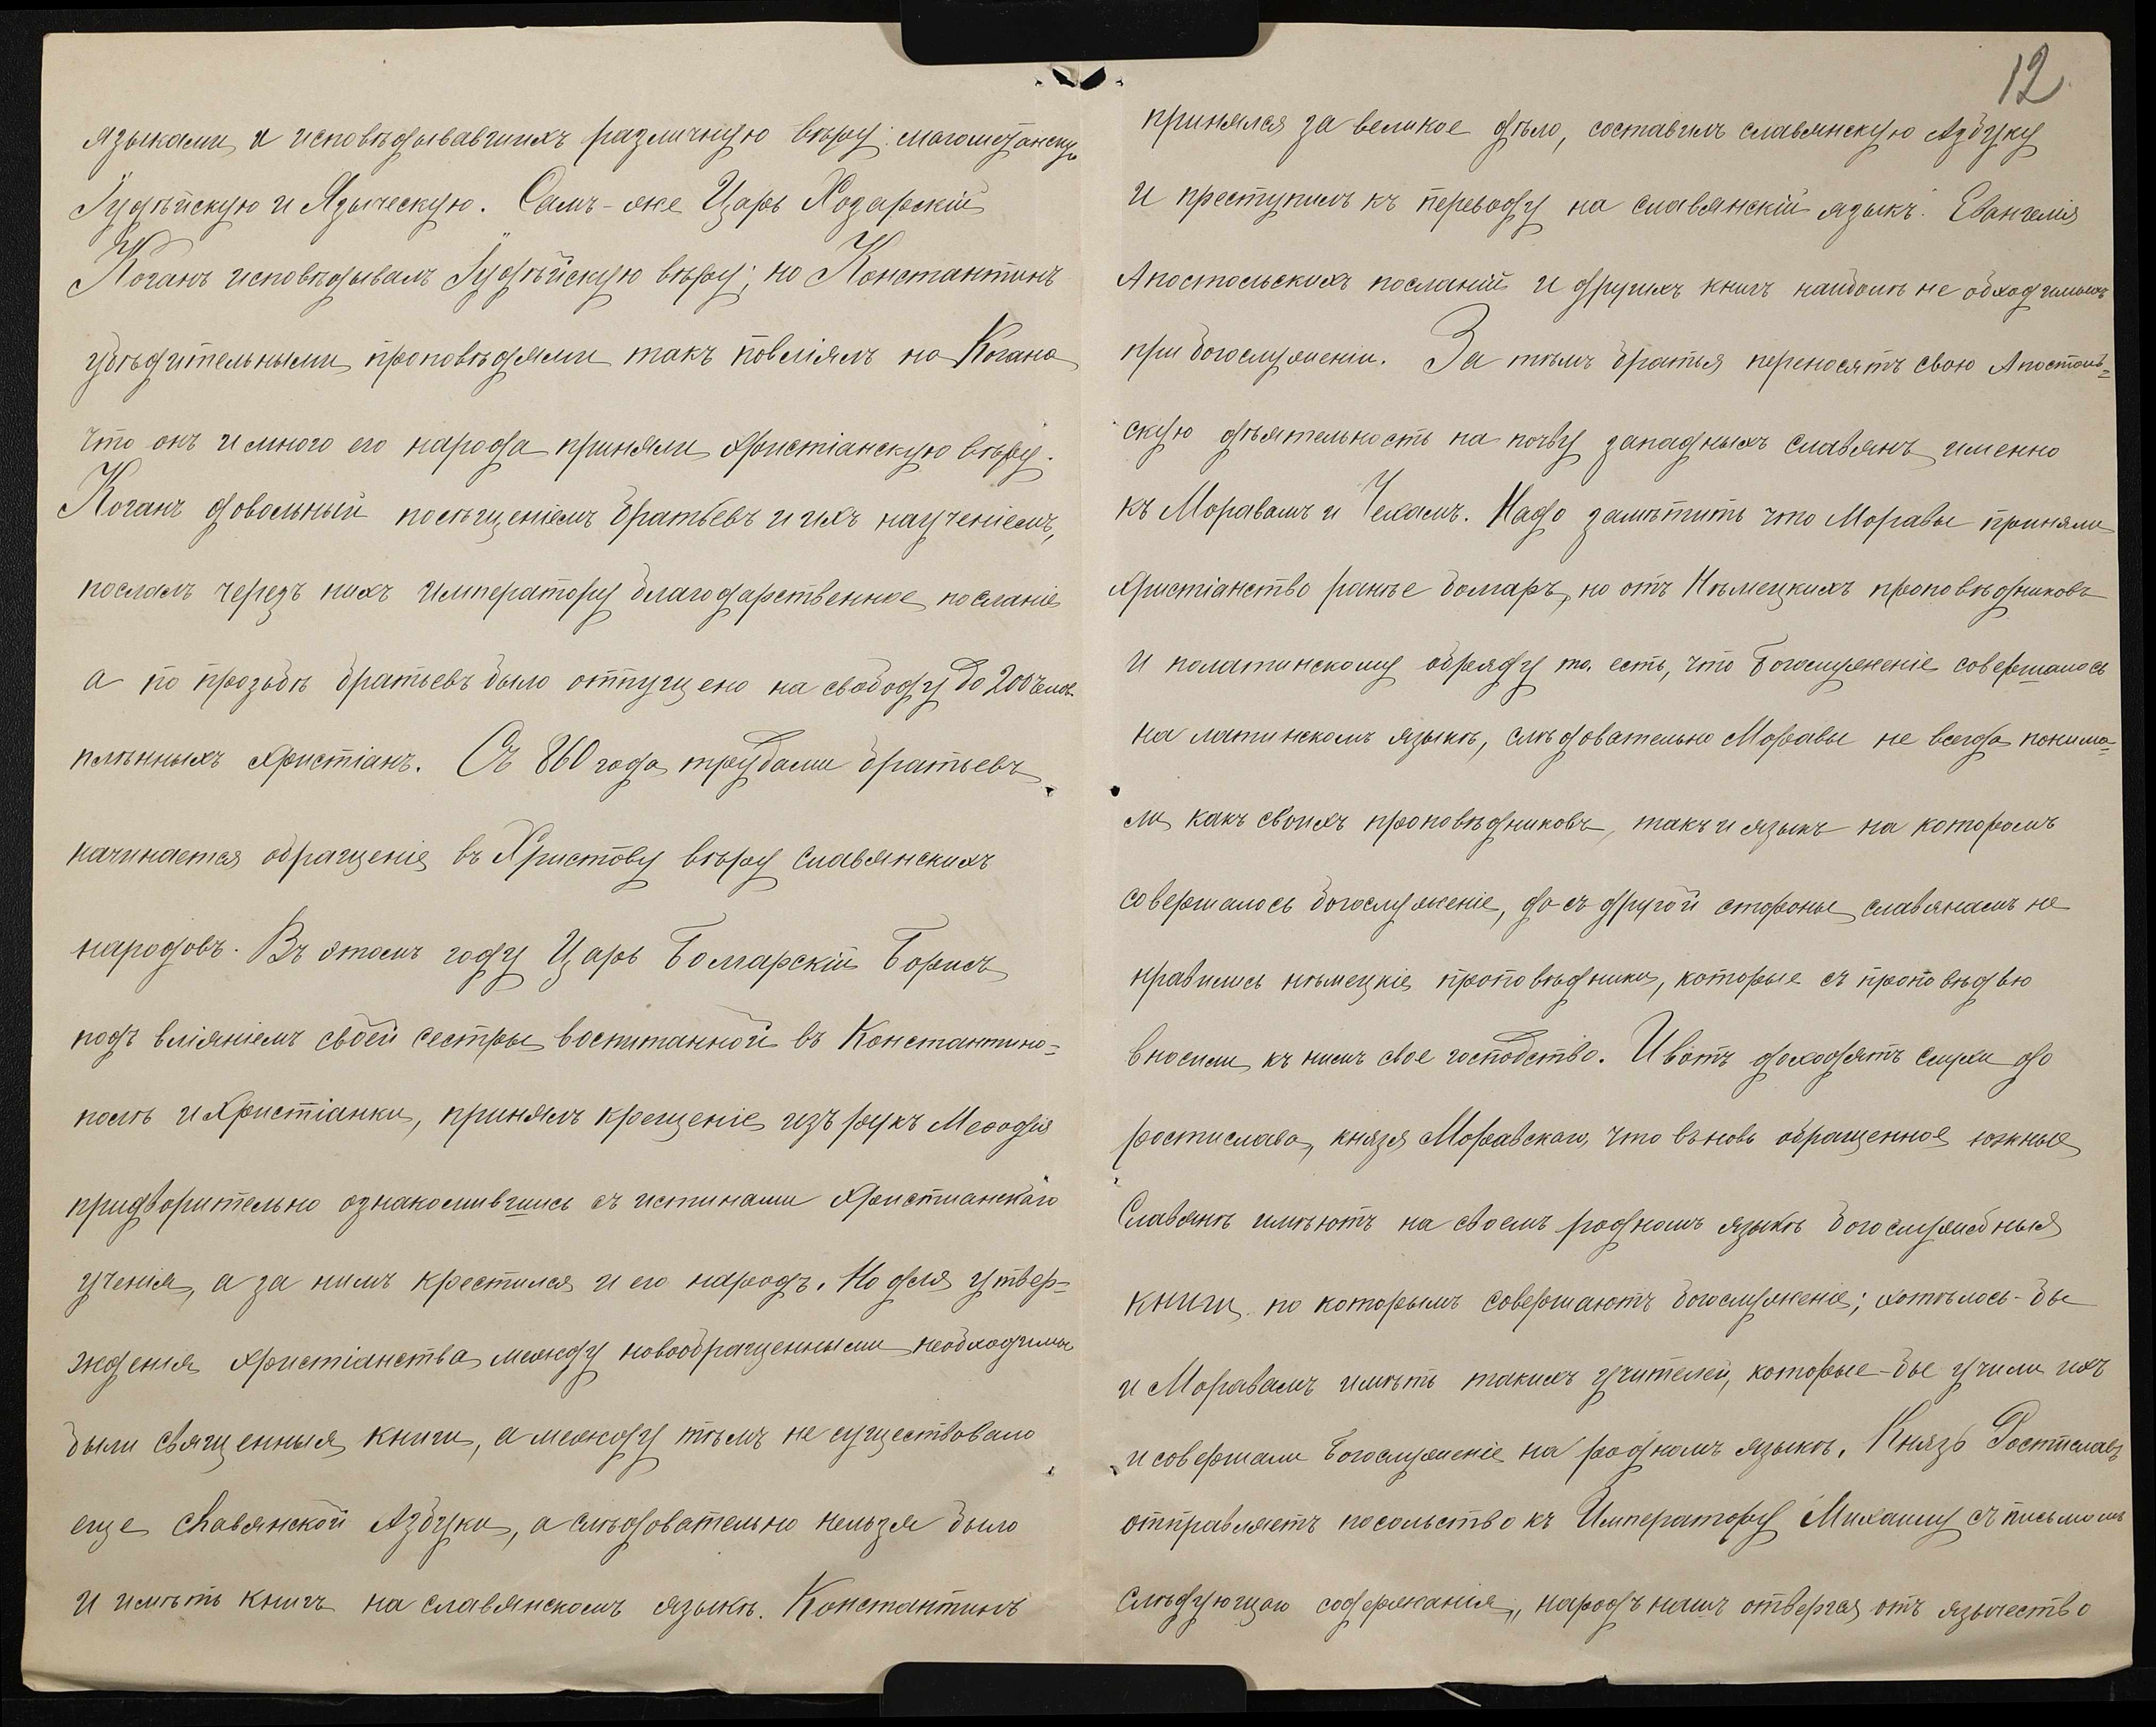 языками, и исповѣдывавшихъ различную вѣру: магометанскую
Іудѣйскую и Языческую. Самъ-же Царь Хозарскій
Коганъ исповѣдывалъ Іудѣйскую вѣру; но Константинъ
убѣдительными проповѣдями такъ повліялъ на Когана
что онъ и много его народа приняли христіанскую вѣру.
Коганъ довольный посѣщеніемъ братьевъ и ихъ наученіемъ,
послалъ черезъ нихъ императору благодарственное посланіе
а по прозьбѣ братьевъ было отпущено на свободу до 200 челов.
плѣнныхъ христіанъ. Съ 860 года трудами братьевъ
начинается обращеніе въ Христову вѣру славянскихъ
народовъ. Въ этомъ году Царь Болгарскій Борисъ
подъ вліяніемъ своей сестры воспитанной въ Константино=
полѣ и Христіанки, принялъ крещеніе изъ рукъ Меѳодія
придворительно ознакомившись съ истинами Христианскаго
ученія, а за нимъ крестился и его народъ. Но для утвер=
жденія христіанства между новообращенными необходимы
были священныя книги, а между тѣмъ не существовало
еще славянской Азбуки, а слѣдовательно нельзя было
и имѣть книгъ на славянскомъ языкѣ. Константинъ
12
принялся за великое дѣло, составилъ славянскую Азбуку
и преступилъ къ переводу на славянскій языкъ. Евангелія
Апостольскихъ посланій и другихъ книгъ наиболѣ не обходимыхъ
при богослуженіи. За тѣмъ братья переносятъ свою Апостоль=
скую дѣятельность на почву западныхъ славянъ именно
къ Моравамъ и Чехамъ. Надо замѣтить что Моравы приняли
христіанство ранѣе болгаръ, но отъ Нѣмецкихъ проповѣдниковъ
и полатинскому обряду то. есть, что Богослуженіе совершалось
на латинскомъ языкѣ, слѣдовательно Моравы не всегда понима=
ли какъ своихъ проповѣдниковъ, такъ и языкъ на которомъ
совершалось богослуженіе, да съ другой стороны славянамъ не
нравились нѣмецкіе проповѣдники, которые съ проповѣдью
вносили къ нимъ свое господство. И вотъ доходятъ слухи до
ростислава, князя Моравскаго, что въновь обращенное южные
Славянѣ имѣютъ на своемъ родномъ языкѣ богослужебныя
книги по которымъ совершаютъ богослуженіе; хотѣлось-бы
и Моравамъ имѣть такихъ учителей, которые-бы учили ихъ
и совершали Богослуженіе на родномъ языкѣ. Князь Ростиславъ
отправляетъ посольство къ Императору Михаилу съ письмомъ
слѣдующаго содержанія,, народъ нашъ отвергая отъ язычество